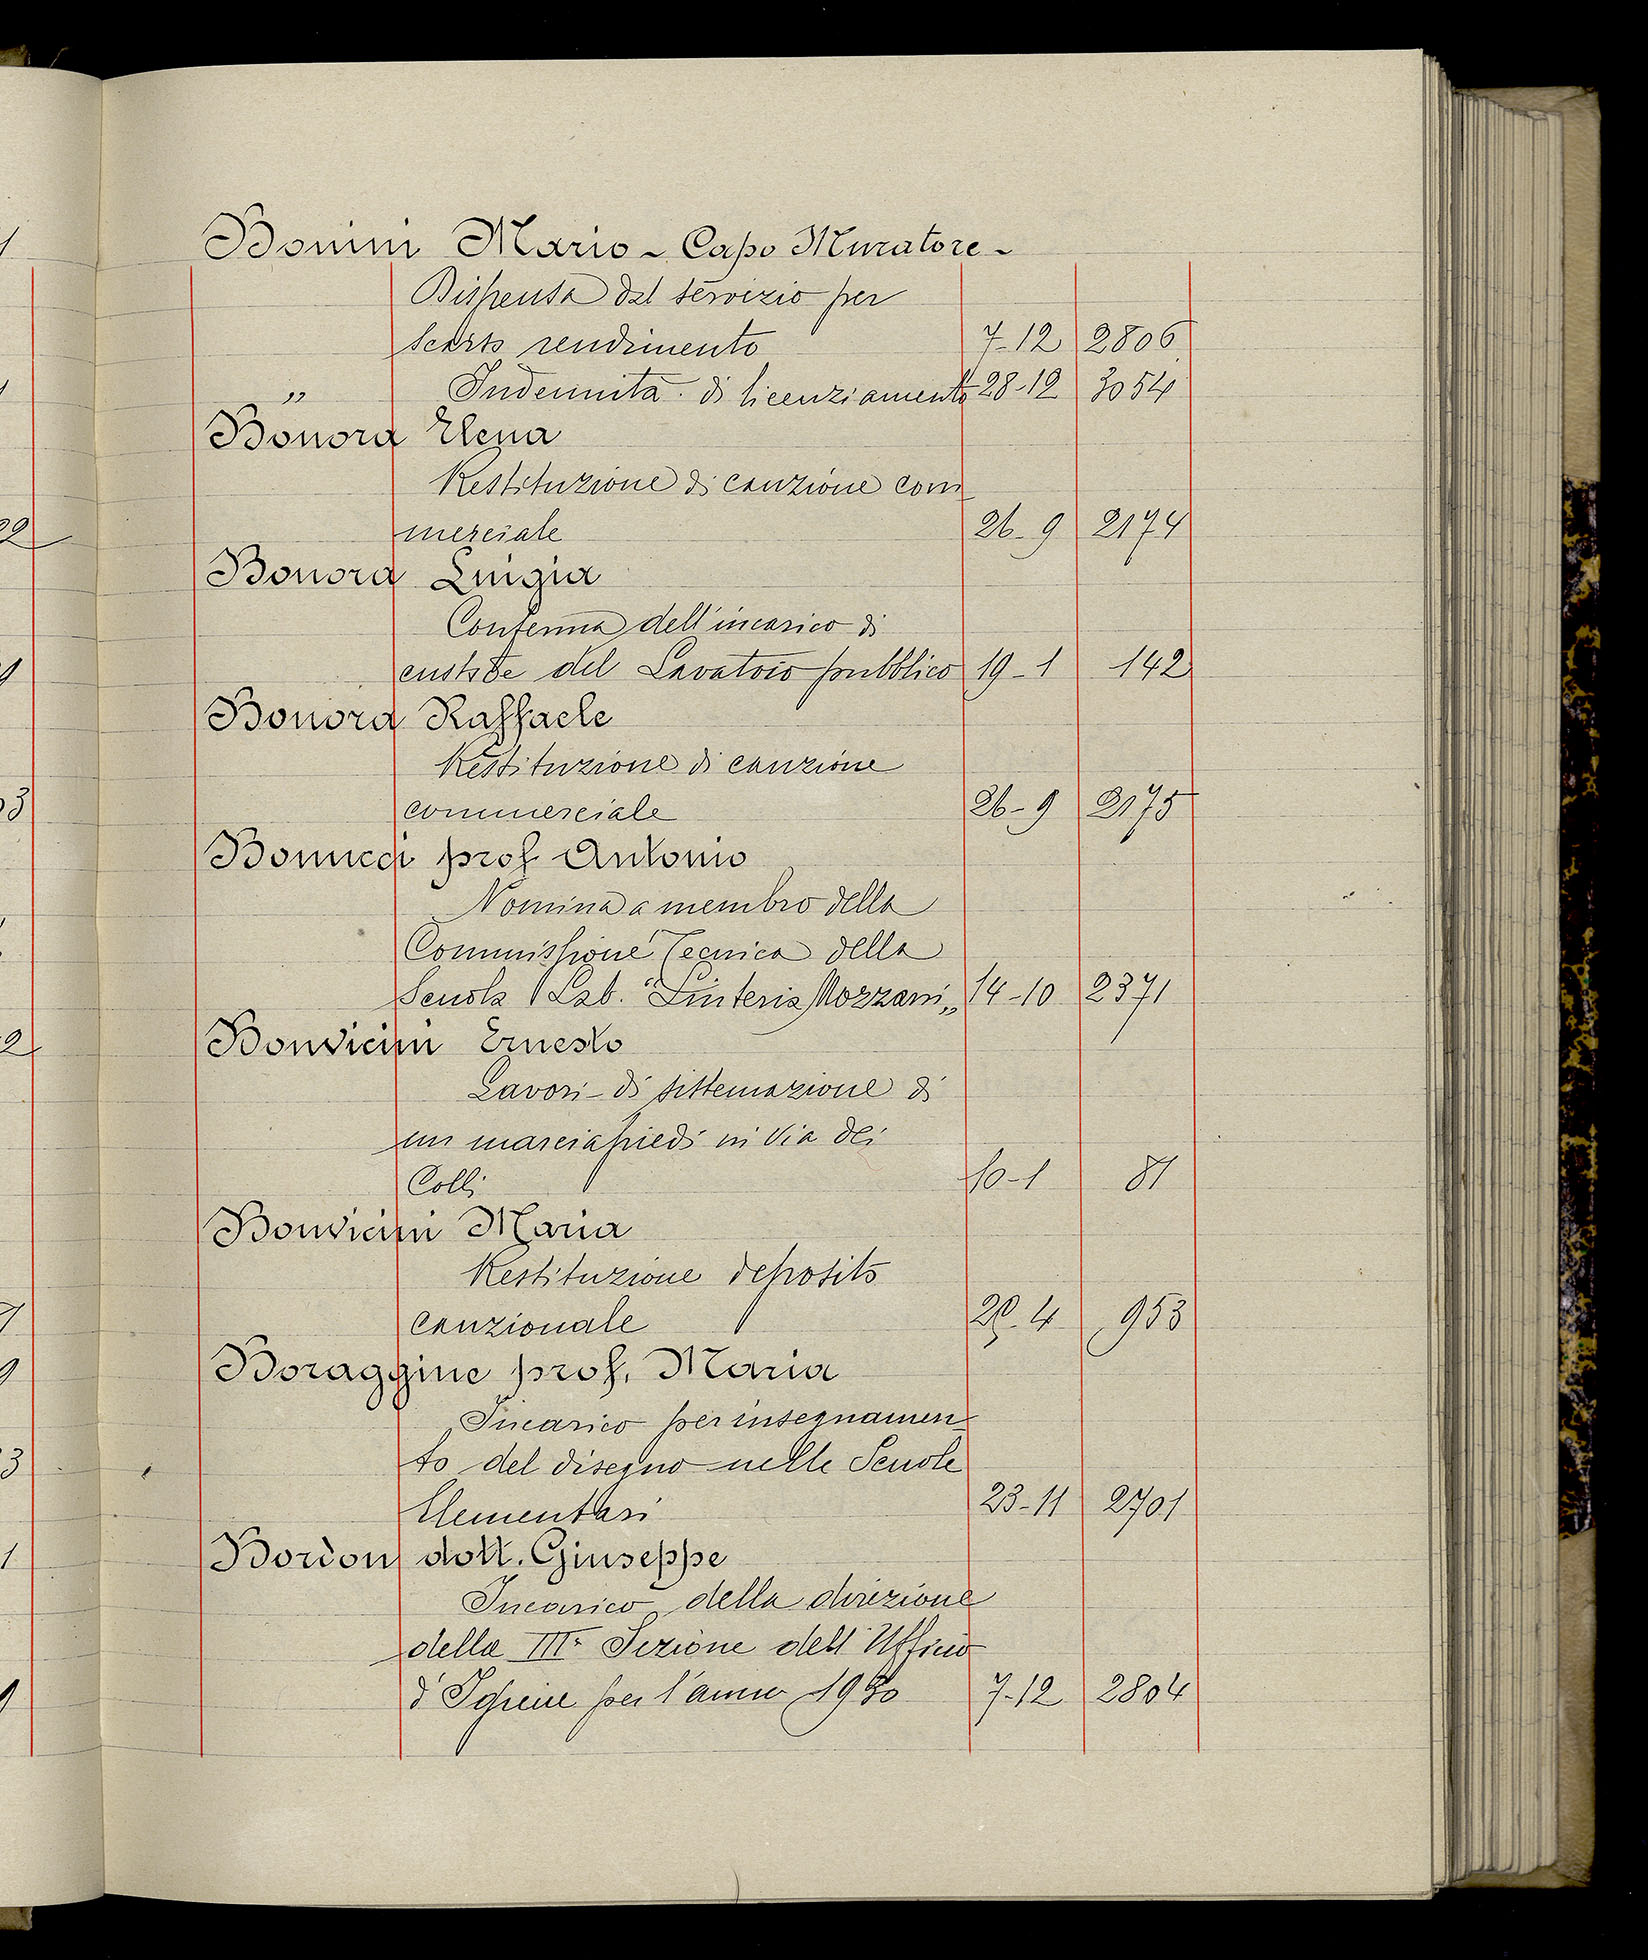 Bonini Mario - Capo Muratore -
Dispensa dal servizio per
scarso rendimento 7-12 2806
" Indennità di licenziamento 28-12 3054
Bonora Elena
Restituzione di cauzione com
merciale 26-9 2174
Bonora Luigia
Conferma dell'incarico di
custode del Lavatoio pubblico 19-1 142
Bonora Raffaele
Restituzione di cauzione
commerciale 26-9 2175
Bonucci prof. Antonio
Nomina a membro della
Commissione Tecnica della
Scuola Lab. "Liuteria Mozzani" 14-10 2371
Bonvicini Ernesto
Lavori di sistemazione di
un marciapiedi in Via dei
Colli 10-1 81
Bonvicini Maria
Restituzione deposito
cauzionale 4 953
Boraggine prof. Maria
Incarico per insegnamen-
to del disegno nelle Scuole
Elementari 23-11 2701
Bordoni dott. Giuseppe
Incarico della direzione
della IIIª Sezione dell'Ufficio
d'Igiene per l'anno 7-12 2804